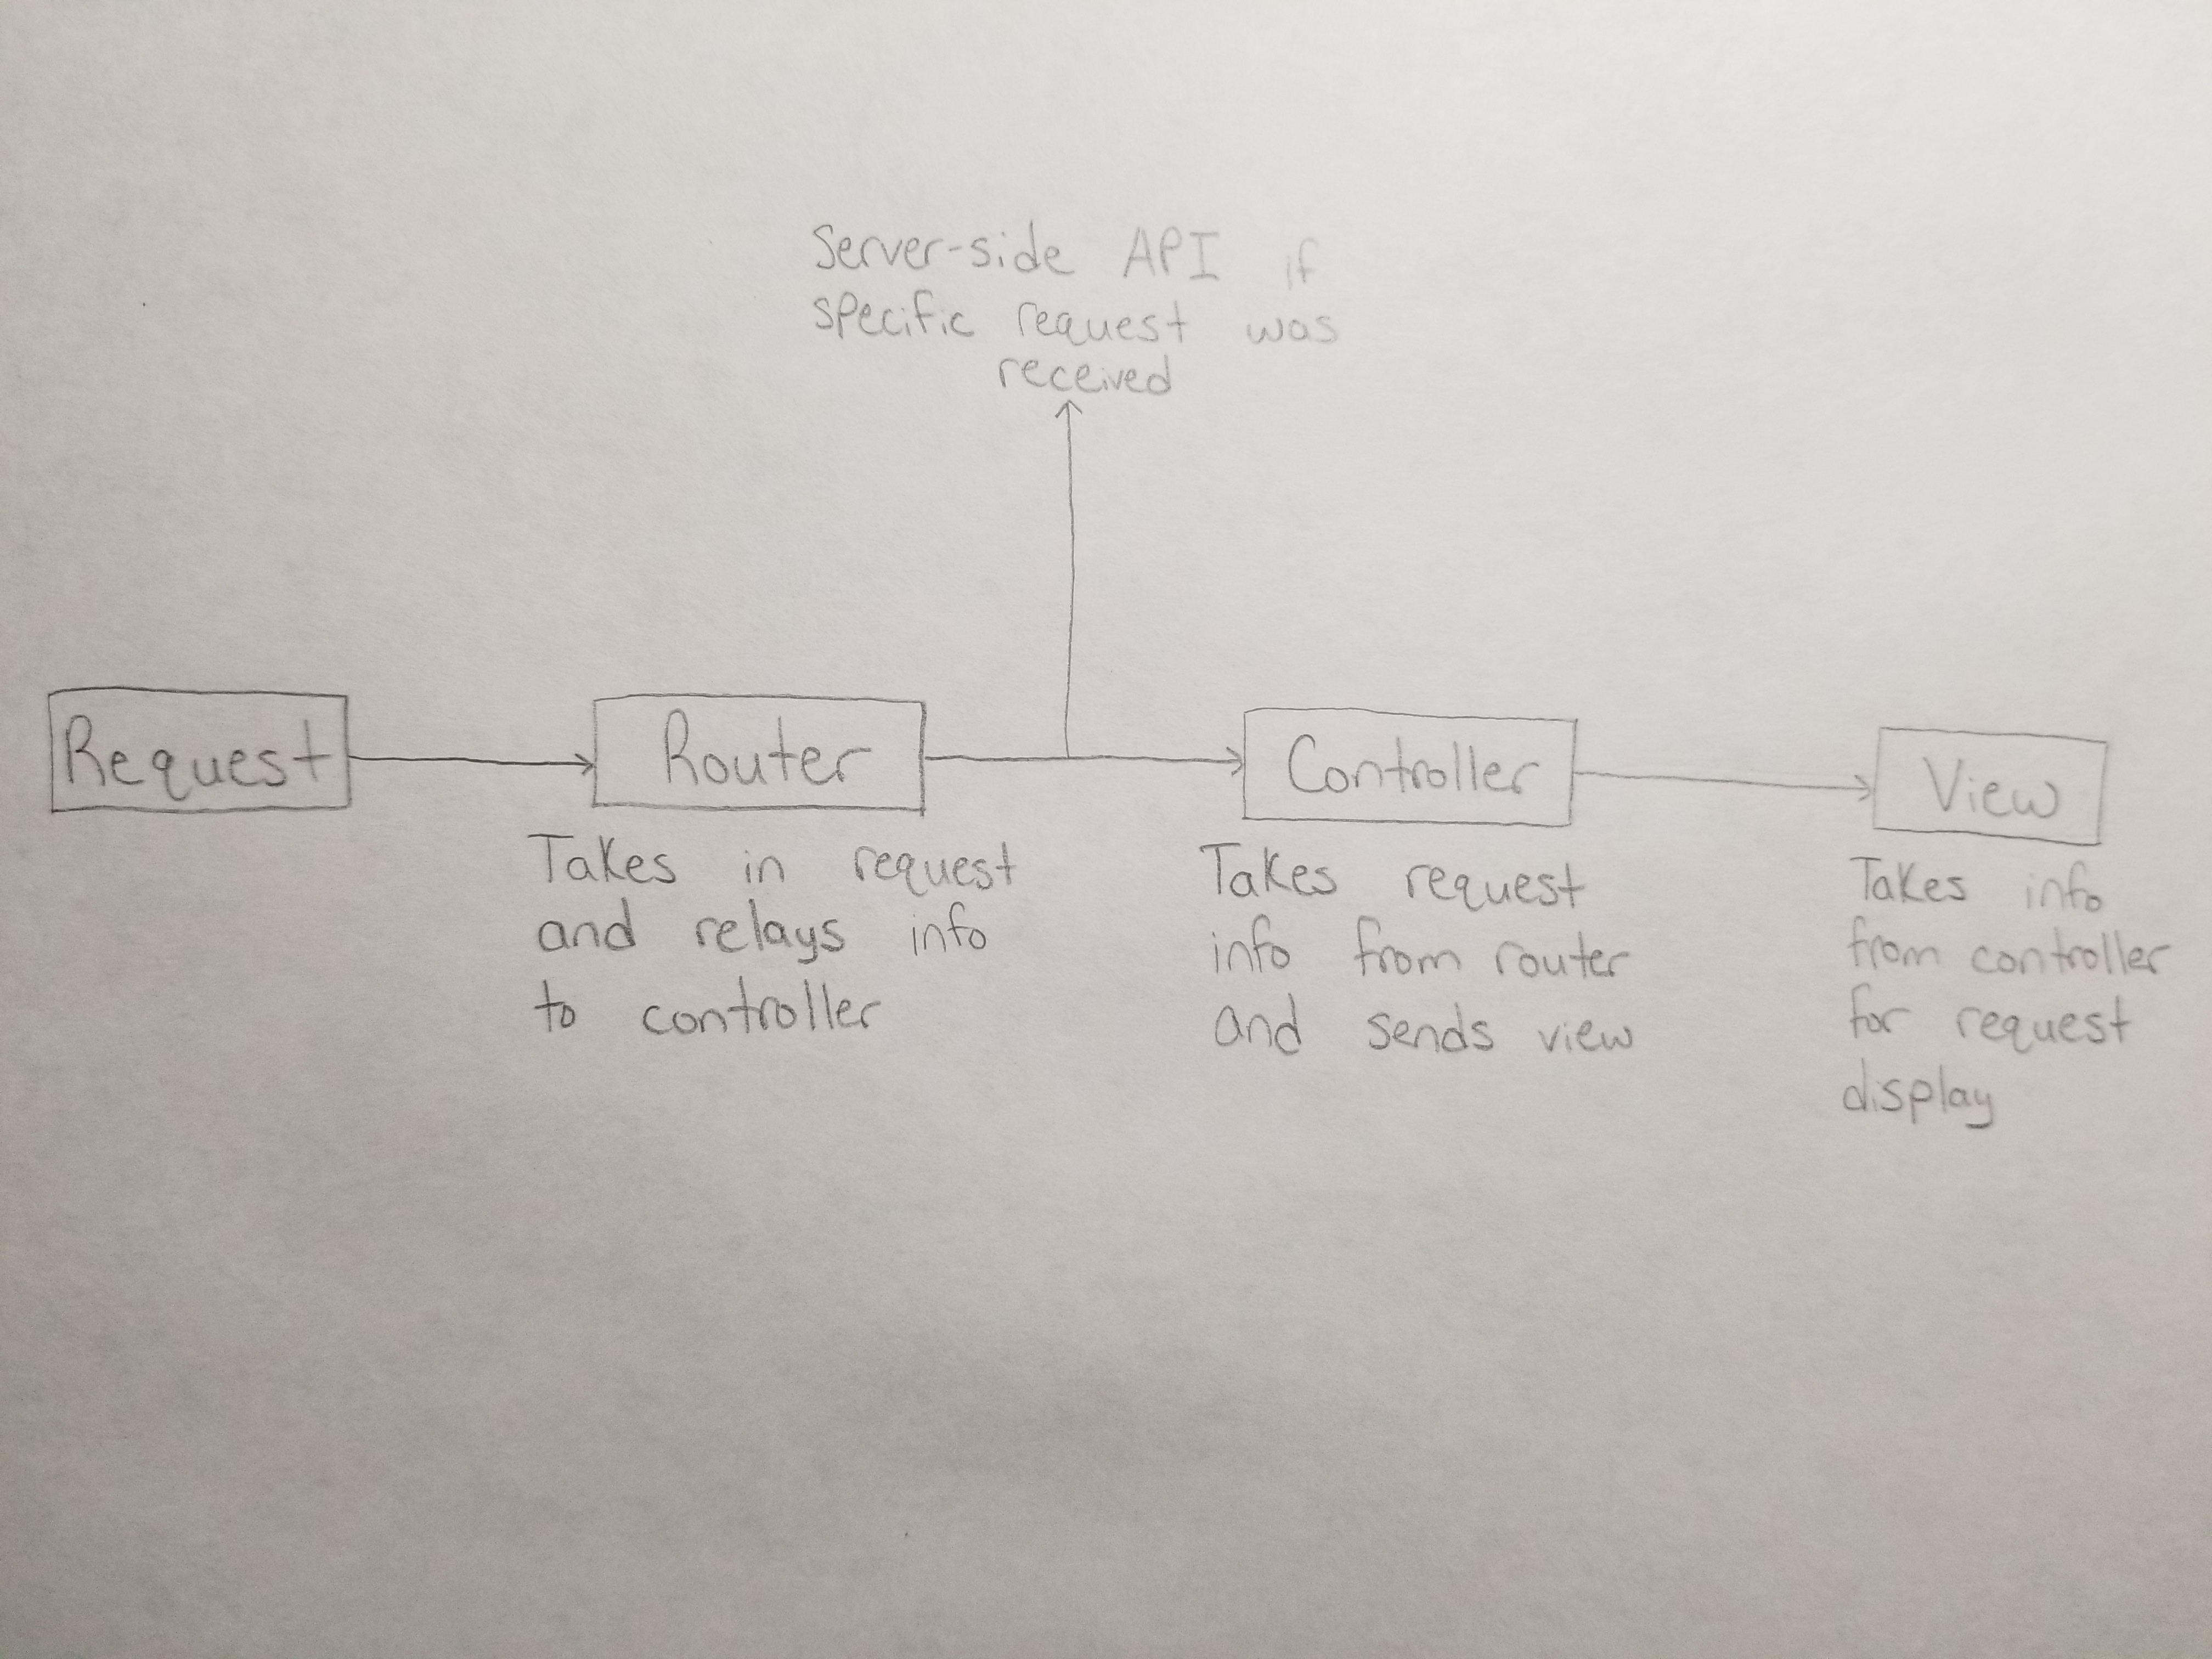 Server-side API if
specific request was
received
Request
Router
Controller
View
Takes in request
and relays info
to controller
Takes request
info from router
and sends view
Takes info
from controller
for request
display